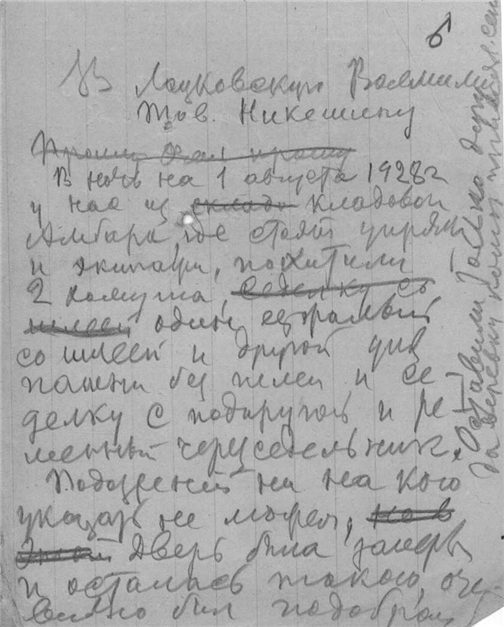 6
В Лоцковскую Волмили
Тов. Никешину
Прошу
В ночь на 1 августа 1928 г
у нас из склада кладовой
Амбара, где стоят упряжи
и экипажи, похитили
2 хомута, седелку со
шлеей один ездовой
со шлеей и другой для
пашни без шлеи и се
делку с подпругой и ре
менный чересседельник.
Подозрений ни на кого
указать не можем,
дверь была заперта
и осталась такого, оче
видно был подобран
Оставили только